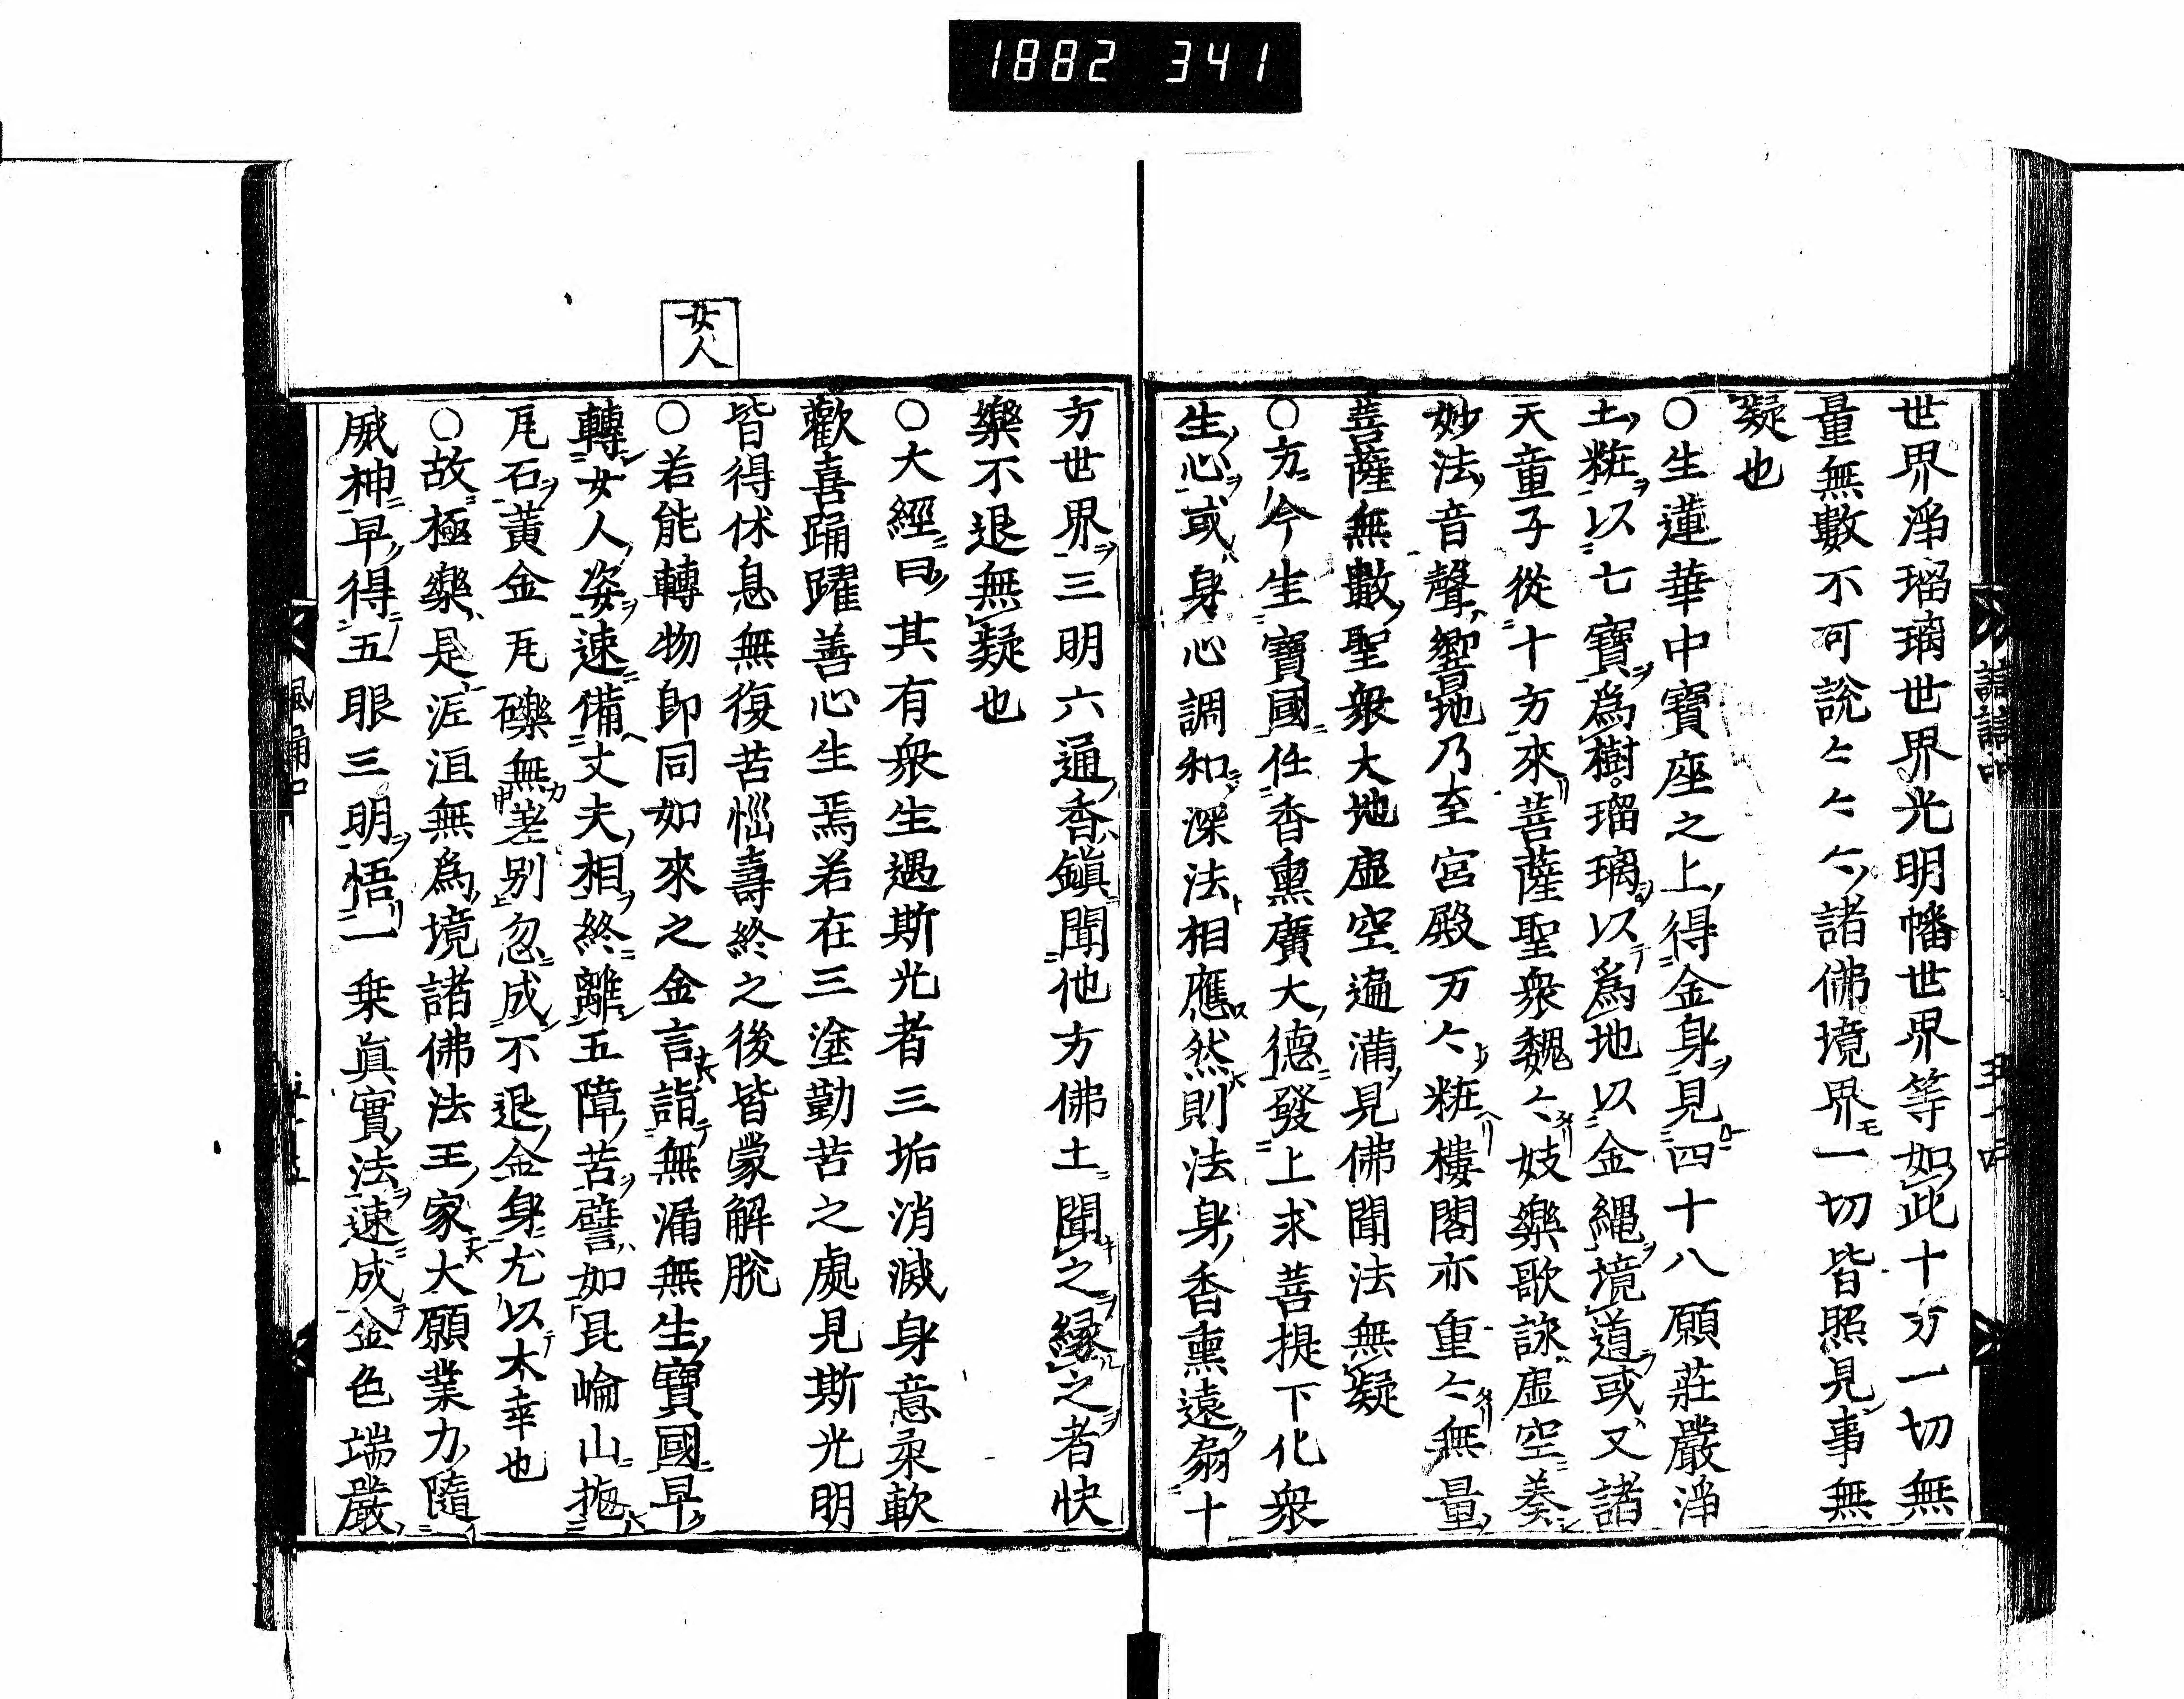 1882 341
世界淨瑠璃世界光明幡世界等如此十方一切無
量無數不可說〻〻〻諸佛境界一切皆照見事無
疑也
○生蓮華中寶座之上得金身見四十八願莊嚴淨
土粧以七寶爲樹瑠璃以爲地以金繩境道或又諸
天童子從十方來菩薩聖衆巍〻妓樂歌詠虛空奏
妙法音聲響地乃至宮殿万〻粧樓閣亦重〻無量
菩薩無數聖衆大地虛空遍滿見佛聞法無疑
○方今生寶國任香熏廣大德發上求菩提下化衆
生心或身心調和深法相應然則法身香熏遠扇十
方世界三明六通香鎭聞他方佛土聞之縁之者快
樂不退無疑也
○大經曰其有衆生遇斯光者三垢消滅身意柔軟
歡喜踊躍善心生焉若在三塗勤苦之處見斯光明
皆得休息無復苦惱壽終之後皆蒙解脫
女人
○若能轉物即同如來之金言詣無漏無生寶國早
轉女人姿速備丈夫相終離五障苦譬如昆崙山抛
瓦石黃金瓦礫無差別忽成不退金身尤以太幸也
○故極樂是涅洹無爲境諸佛法王家大願業力隨
威神早得五眼三明悟一乗眞實法速成金色端嚴